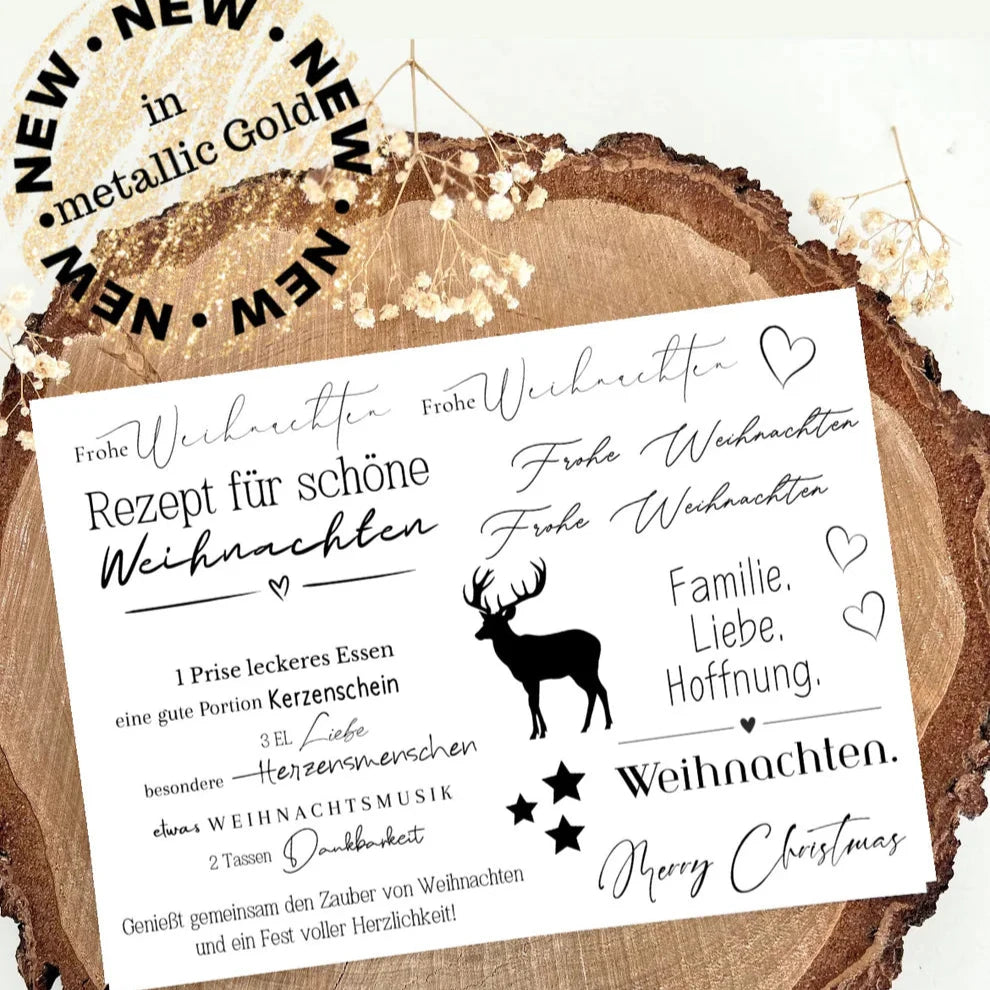 NEW • NEW • NEW • NEW • NEW • NEW •
in
metallic Gold
Frohe Weihnachten
Frohe Weihnachten
Rezept für schöne
Weihnachten
1 Prise leckeres Essen
eine gute Portion Kerzenschein
3 EL Liebe
besondere Herzensmenschen
etwas WEIHNACHTSMUSIK
2 Tassen Dankbarkeit
Genießt gemeinsam den Zauber von Weihnachten
und ein Fest voller Herzlichkeit!
Frohe Weihnachten
Frohe Weihnachten
Familie.
Liebe.
Hoffnung.
Weihnachten.
Merry Christmas